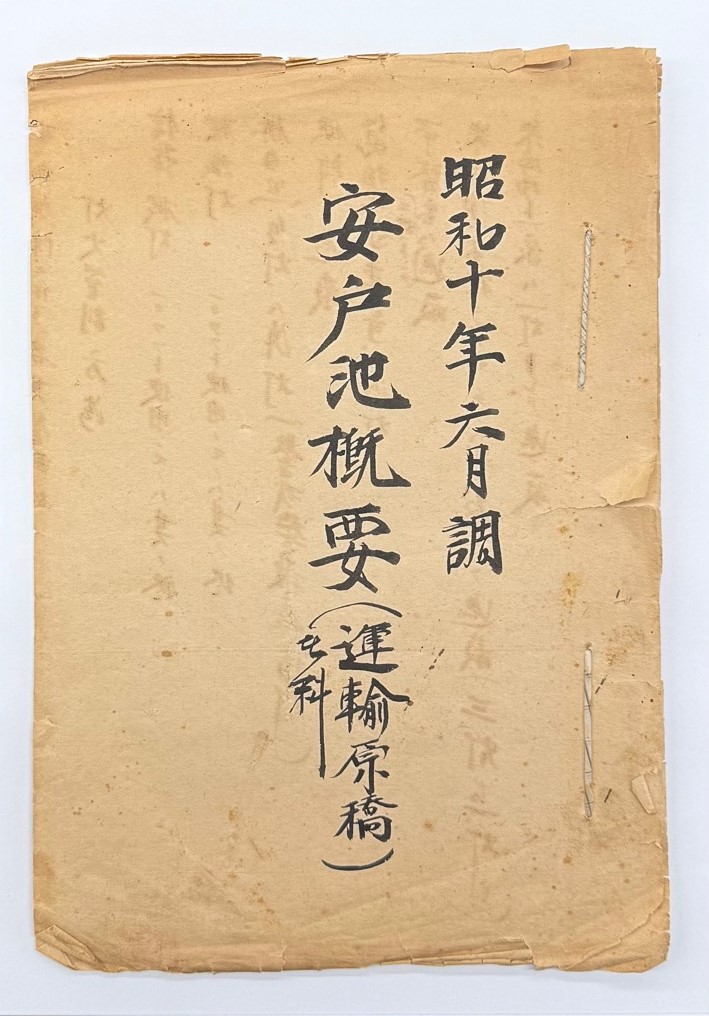 昭和十年六月調
安戸池概要(運輸原稿)